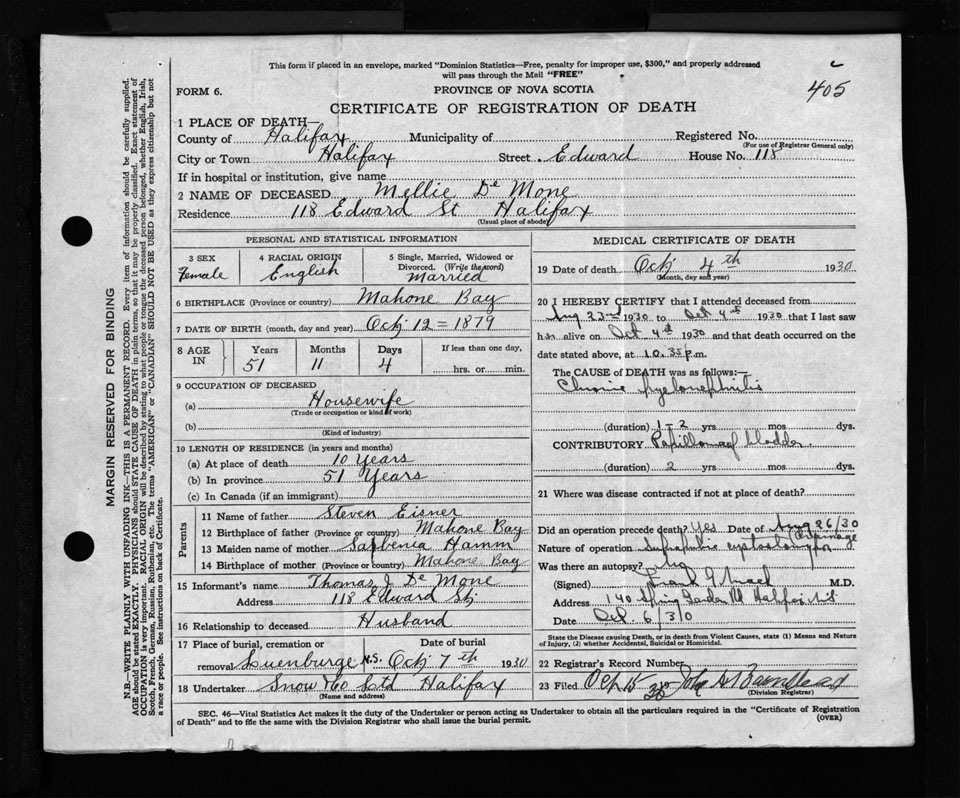 This form if placed in an envelope, marked "Dominion Statistics—Free, penalty for improper use, $300," and properly addressed
will pass through the Mail "FREE"
405
FORM 6.
PROVINCE OF NOVA SCOTIA
CERTIFICATE OF REGISTRATION OF DEATH
1 PLACE OF DEATH—
County of Halifax Municipality of Registered No.
(For use of Registrar General only)
City or Town Halifax Street Edward House No. 118
If in hospital or institution, give name
2 NAME OF DECEASED Mellie De Mone
Residence 118 Edward St Halifax
(Usual place of abode)
PERSONAL AND STATISTICAL INFORMATION
3 SEX
Female
4 RACIAL ORIGIN
English
5 Single, Married, Widowed or
Divorced. (Write the word)
Married
6 BIRTHPLACE (Province or country) Mahone Bay
7 DATE OF BIRTH (month, day and year) Oct 12 = 1879
8 AGE IN
Years Months Days If less than one day,
51 11 4 hrs. or min.
9 OCCUPATION OF DECEASED
(a) Housewife
(Trade or occupation or kind of work)
(b)
(Kind of industry)
10 LENGTH OF RESIDENCE (in years and months)
(a) At place of death 10 Years
(b) In province 51 Years
(c) In Canada (if an immigrant)
Parents
11 Name of father Steven Eisner
12 Birthplace of father (Province or country) Mahone Bay
13 Maiden name of mother Hamm
14 Birthplace of mother (Province or country) Mahone Bay
15 Informant's name Thomas J De Mone
Address 118 Edward St
16 Relationship to deceased Husband
17 Place of burial, cremation or Date of burial
removal Luenburge N.S. Oct 7th 1930
18 Undertaker Snow & Co Ltd Halifax
(Name and address)
MEDICAL CERTIFICATE OF DEATH
19 Date of death Oct 4th 1930
(Month, day and year)
20 I HEREBY CERTIFY that I attended deceased from
Aug 23rd 1930 to Oct 4th 1930 that I last saw
her alive on Oct 4th 1930 and that death occurred on the
date stated above, at 10.35 p.m.
The CAUSE OF DEATH was as follows:—
Chronic pyelonephritis
(duration) 1-2 yrs mos dys.
CONTRIBUTORY Papilloma of bladder
(duration) 2 yrs mos dys.
21 Where was disease contracted if not at place of death?
Did an operation precede death? Yes Date of Aug 26/30
Nature of operation Suprapubic drainage
Was there an autopsy?
(Signed) M.D.
Address 140 Spring Garden Rd Halifax
Date Oct. 6/30
State the Disease causing Death, or in death from Violent Causes, state (1) Means and Nature
of Injury, (2) whether Accidental, Suicidal or Homicidal.
22 Registrar's Record Number
23 Filed Oct 15
(Division Registrar)
SEC. 46—Vital Statistics Act makes it the duty of the Undertaker or person acting as Undertaker to obtain all the particulars required in the "Certificate of Registration
of Death" and to file the same with the Division Registrar who shall issue the burial permit.
(OVER)
MARGIN RESERVED FOR BINDING
N.B.—WRITE PLAINLY WITH UNFADING INK—THIS IS A PERMANENT RECORD. Every item of information should be carefully supplied.
AGE should be stated EXACTLY. PHYSICIANS should STATE CAUSE OF DEATH in plain terms, so that it may be properly classified. Exact statement of
OCCUPATION is very important. RACIAL ORIGIN will be described by stating to what people or tongue the deceased person belonged, whether English, Irish,
Scotch, French, German, Russian, Ruthenian, etc. The terms "AMERICAN" or "CANADIAN" SHOULD NOT BE USED as they express citizenship but not
a race or people. See instructions on back of Certificate.